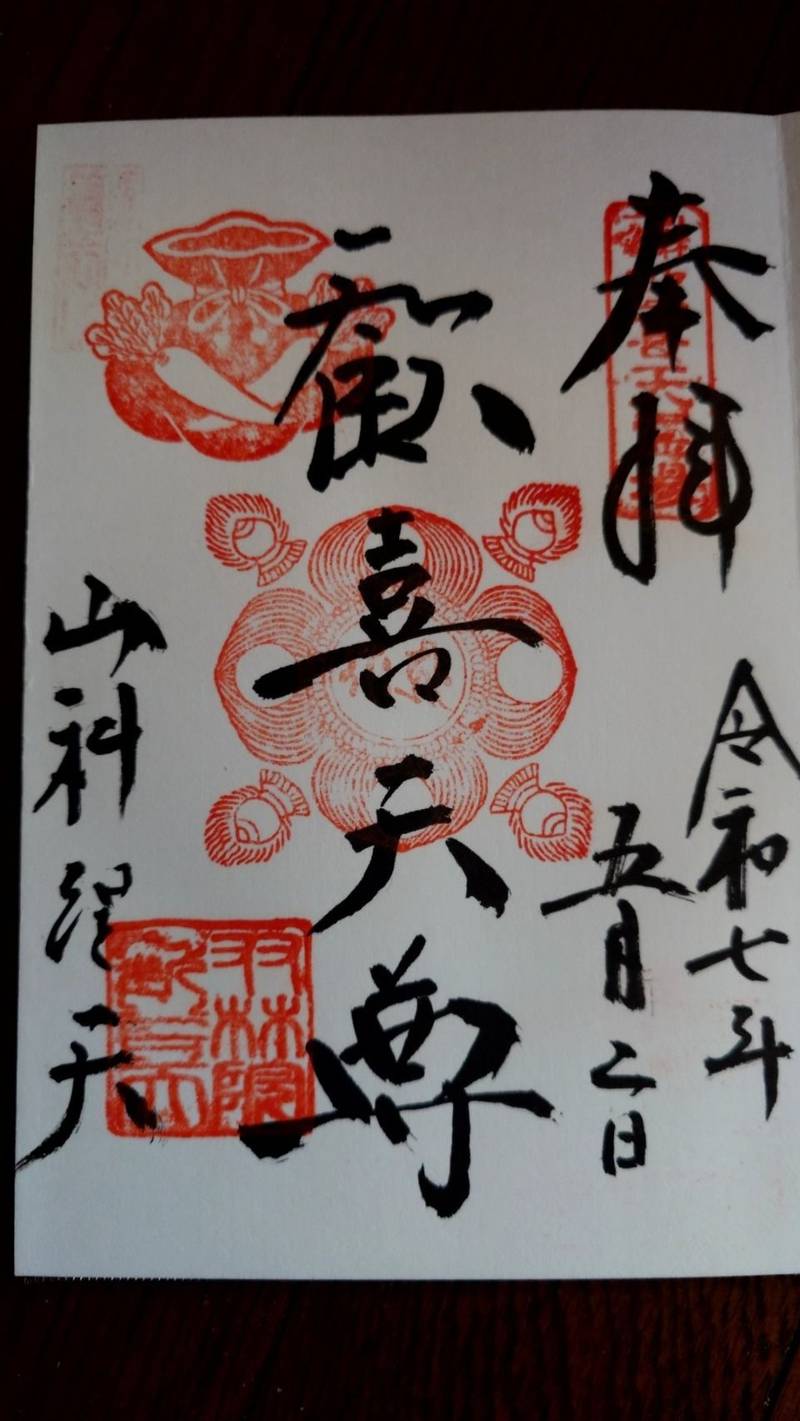 奉拝
令和七年
五月二日
歓喜天尊
山科聖天
双林院